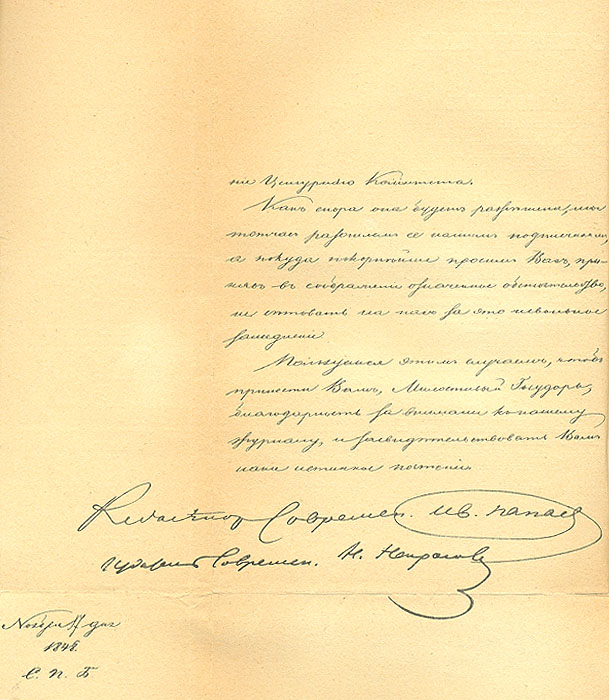 ніе Цензурнаго Комитета.
Какъ скоро она будетъ разрѣшена, мы
тотчасъ разошлемъ ее нашимъ подписчикамъ,
а покуда покорнѣйше просимъ Васъ, при-
нявъ въ соображеніе означенное обстоятельство,
не сѣтовать на насъ за это невольное
замедленіе.
Пользуемся этимъ случаемъ, чтобъ
принести Вамъ, Милостивый Государь,
благодарность за вниманіе къ нашему
журналу, и засвидѣтельствовать Вамъ
наше истинное почтеніе.
Редакторъ Современ. Ив. Панаевъ
Современ. Н. Некрасовъ
дня
1848.
С. П. Б